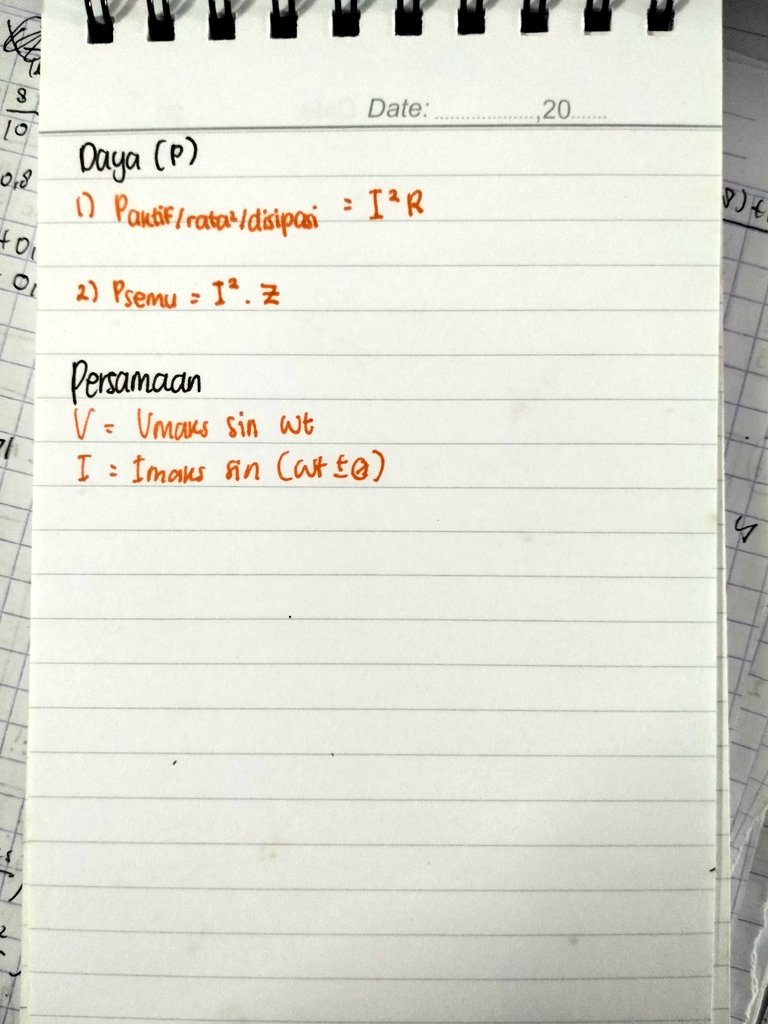 Date: ..................,20......
Daya (P)
1) Paktif/rata²/disipasi = I²R
2) Psemu = I² . Z
Persamaan
V = Vmaks sin ωt
I = Imaks sin (ωt ± θ)
8
10
0,8
+0,
0,
8) t